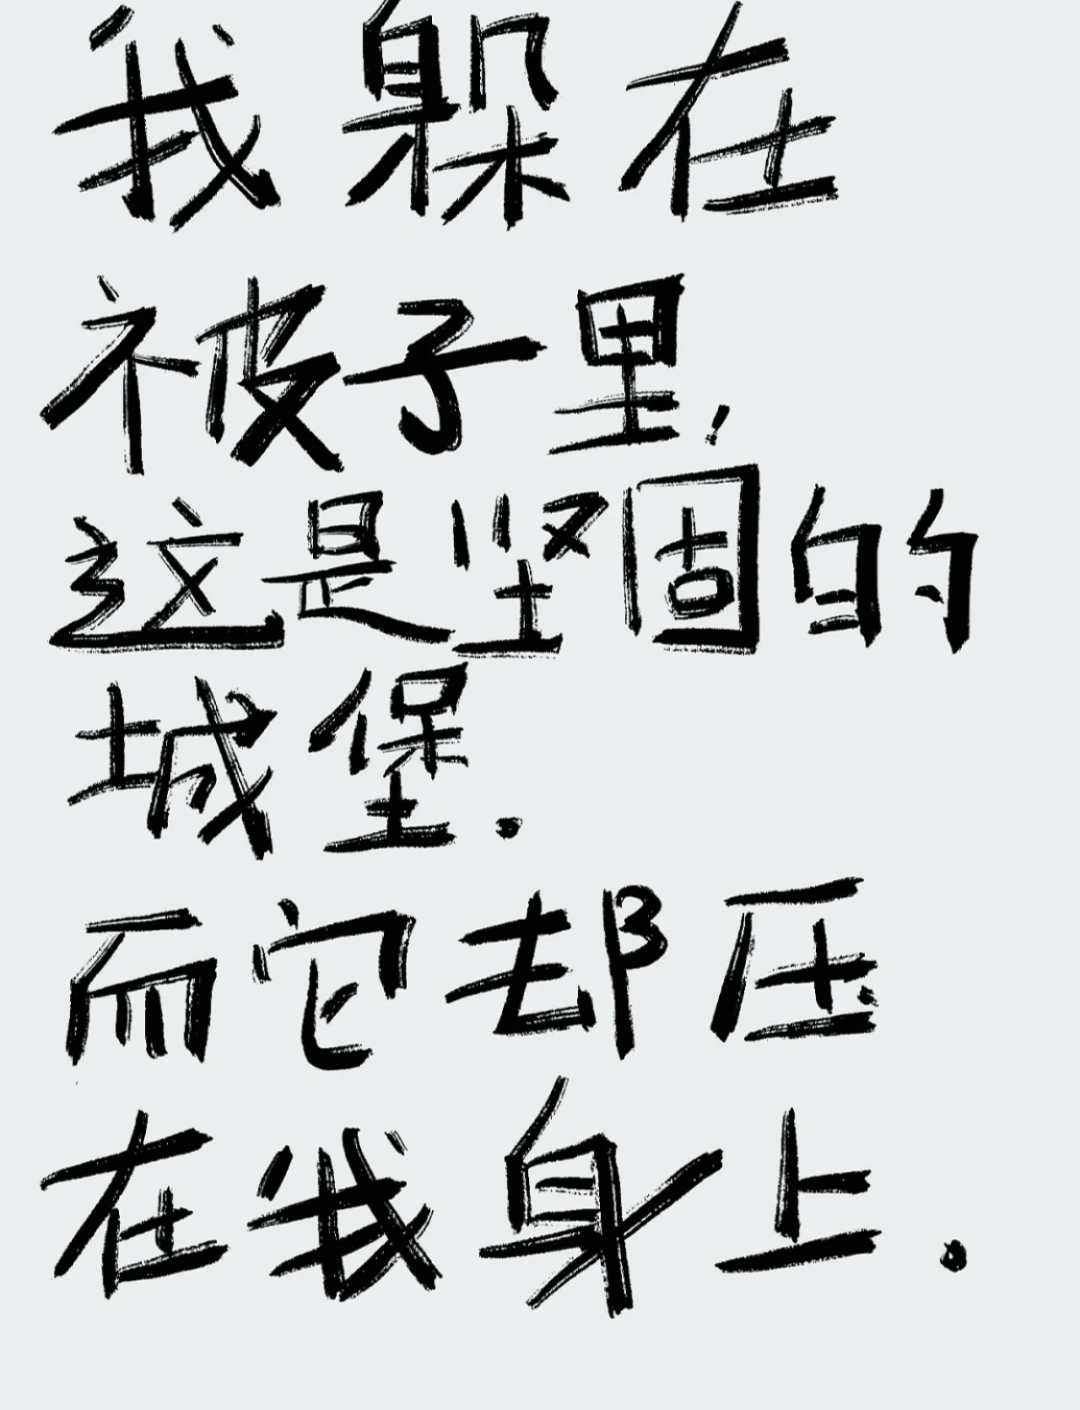 我躲在
被子里,
这是坚固的
城堡.
而它却压
在我身上.